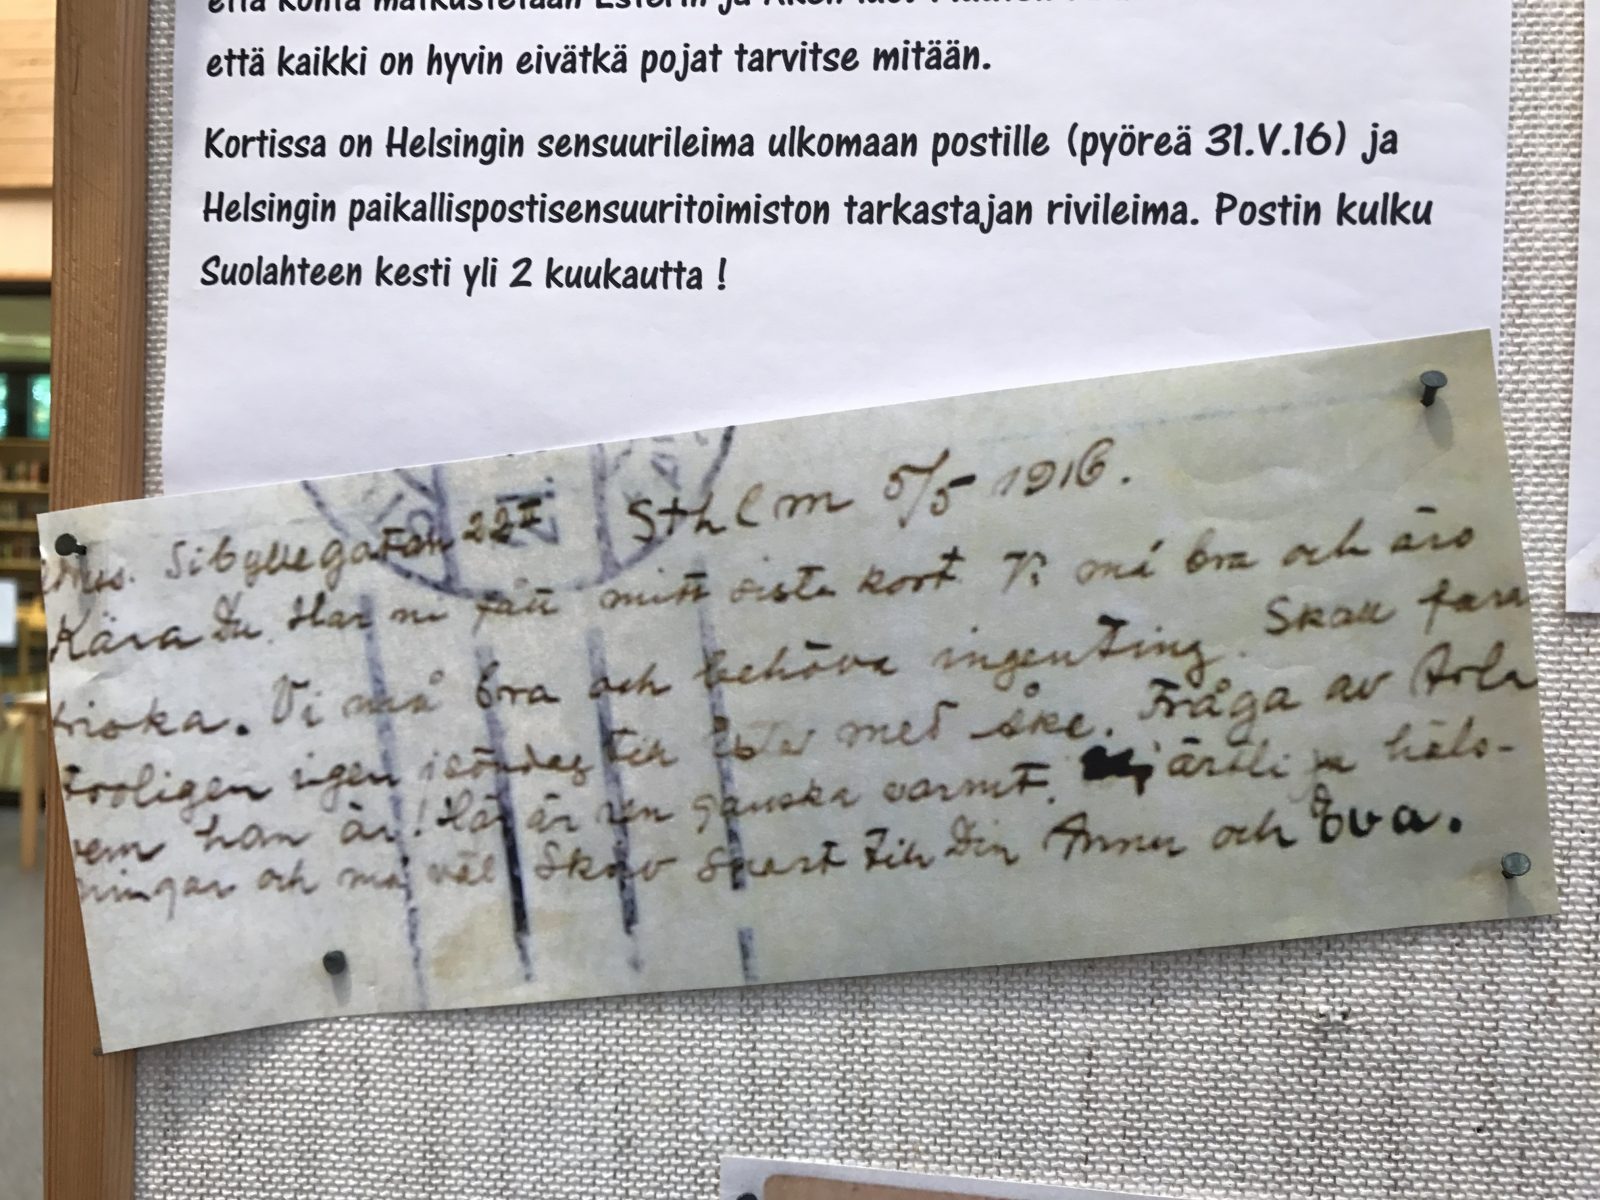 että kohta matkustetaan Esterin ja Åken luo.
että kaikki on hyvin eivätkä pojat tarvitse mitään.
Kortissa on Helsingin sensuurileima ulkomaan postille (pyöreä 31.V.16) ja
Helsingin paikallispostisensuuritoimiston tarkastajan rivileima. Postin kulku
Suolahteen kesti yli 2 kuukautta !
Sibyllegatan 22 Sthlm 5/5 1916.
Kära Du. Har ni fått mitt sista kort Vi må bra och äro
friska. Vi må bra och behöva ingenting. Skall fara
troligen igen till Ester med Åke. Fråga av Arla
vem han är! Här är ren ganska varmt. häls-
ningar och må väl Skriv snart till Din Anna och Eva.